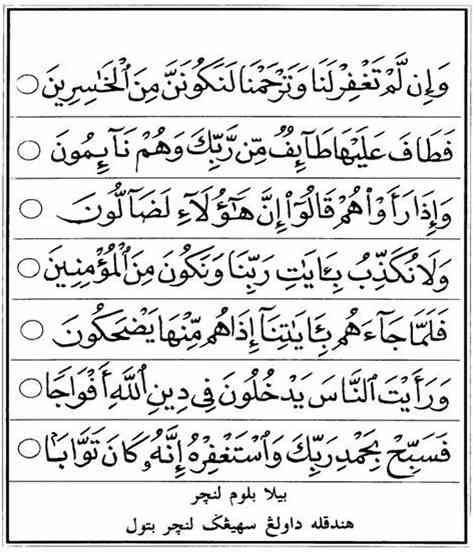 وَإِن لَّمْ تَغْفِرْ لَنَا وَتَرْحَمْنَا لَنَكُونَنَّ مِنَ ٱلْخَٰسِرِينَ
فَطَافَ عَلَيْهَا طَآئِفٌ مِّن رَّبِّكَ وَهُمْ نَآئِمُونَ
وَإِذَا رَأَوْهُمْ قَالُوٓا۟ إِنَّ هَٰٓؤُلَآءِ لَضَآلُّونَ
وَلَا نُكَذِّبُ بِـَٔايَٰتِ رَبِّنَا وَنَكُونَ مِنَ ٱلْمُؤْمِنِينَ
فَلَمَّا جَآءَهُم بِـَٔايَٰتِنَآ إِذَا هُم مِّنْهَا يَضْحَكُونَ
وَرَأَيْتَ ٱلنَّاسَ يَدْخُلُونَ فِى دِينِ ٱللَّهِ أَفْوَاجًا
فَسَبِّحْ بِحَمْدِ رَبِّكَ وَٱسْتَغْفِرْهُ إِنَّهُۥ كَانَ تَوَّابًۢا
بيلا بلوم لنچر
هندقله داولڠ سهيڠݢ لنچر بتول